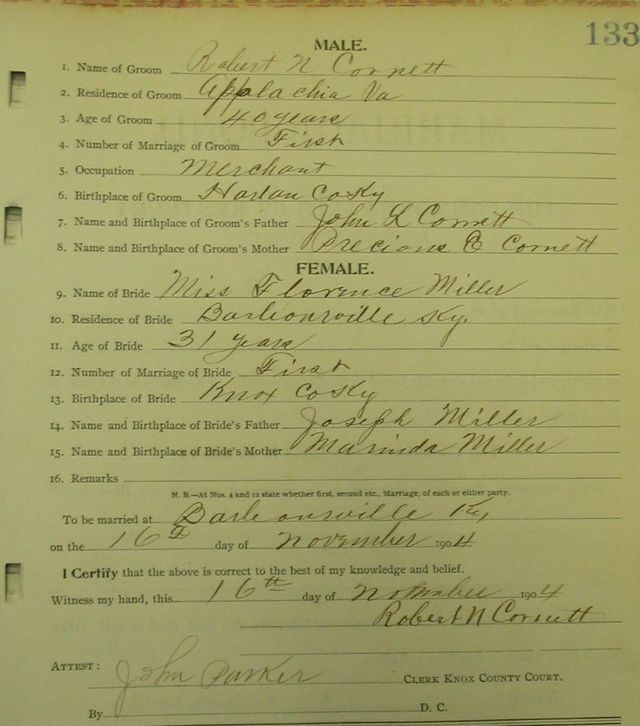 133
MALE.
1. Name of Groom Robert N Cornett
2. Residence of Groom Applachia Va
3. Age of Groom 40 years
4. Number of Marriage of Groom First
5. Occupation Merchant
6. Birthplace of Groom Harlan Co Ky
7. Name and Birthplace of Groom's Father John L Cornett
8. Name and Birthplace of Groom's Mother Precious E Cornett
FEMALE.
9. Name of Bride Miss Florence Miller
10. Residence of Bride Barbourville Ky.
11. Age of Bride 31 years
12. Number of Marriage of Bride First
13. Birthplace of Bride Knox Co Ky
14. Name and Birthplace of Bride's Father Joseph Miller
15. Name and Birthplace of Bride's Mother Marinda Miller
16. Remarks
N. B.—At Nos. 4 and 12 state whether first, second etc., Marriage, of each or either party.
To be married at Barbourville Ky
on the 16th day of November 1904
I Certify that the above is correct to the best of my knowledge and belief.
Witness my hand, this 16th day of November 1904
Robert N Cornett
ATTEST: John Parker CLERK KNOX COUNTY COURT.
By D. C.